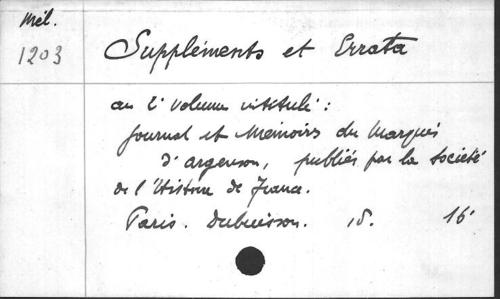 Mél.
1203
Suppléments et Errata
au 2e volume intitulé :
Journal et Mémoires du Marquis
d'argenson, publiés par la Société
de l'Histoire de France.
Paris. Dubuisson. s.d. 16°